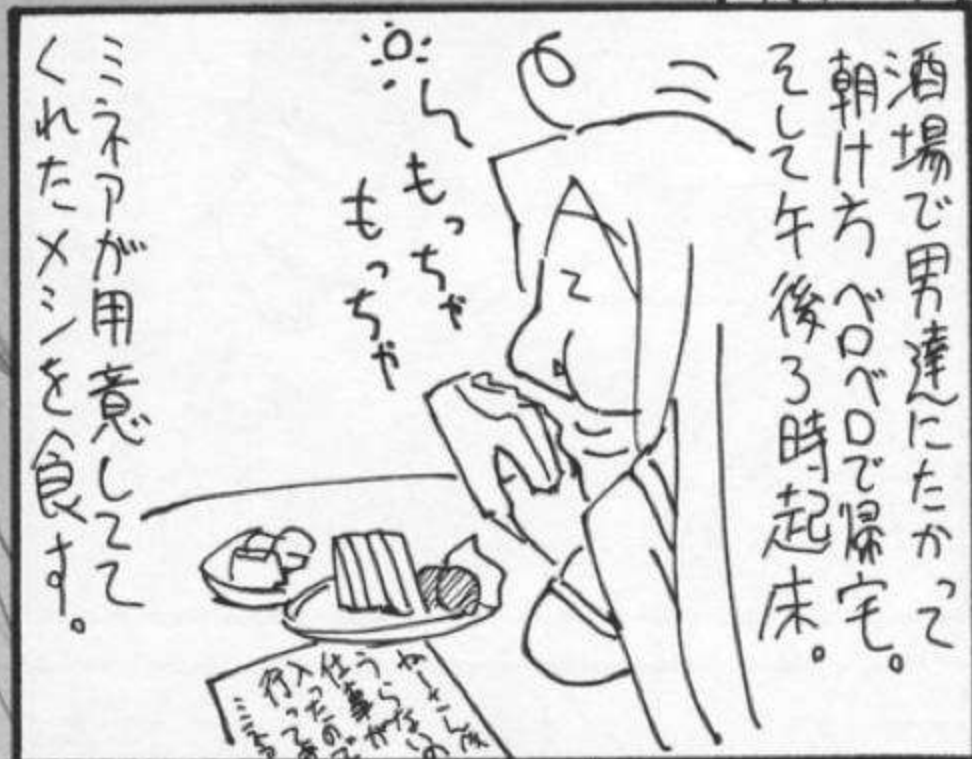 酒場で男達にたかって
朝け方ベロベロで帰宅。
そして午後3時起床。
もっちゃ
もっちゃ
ミネアが用意してて
くれたメシを食す。
ねーさんへ
うらないの
仕事が
入ったので
行ってき
ミネア